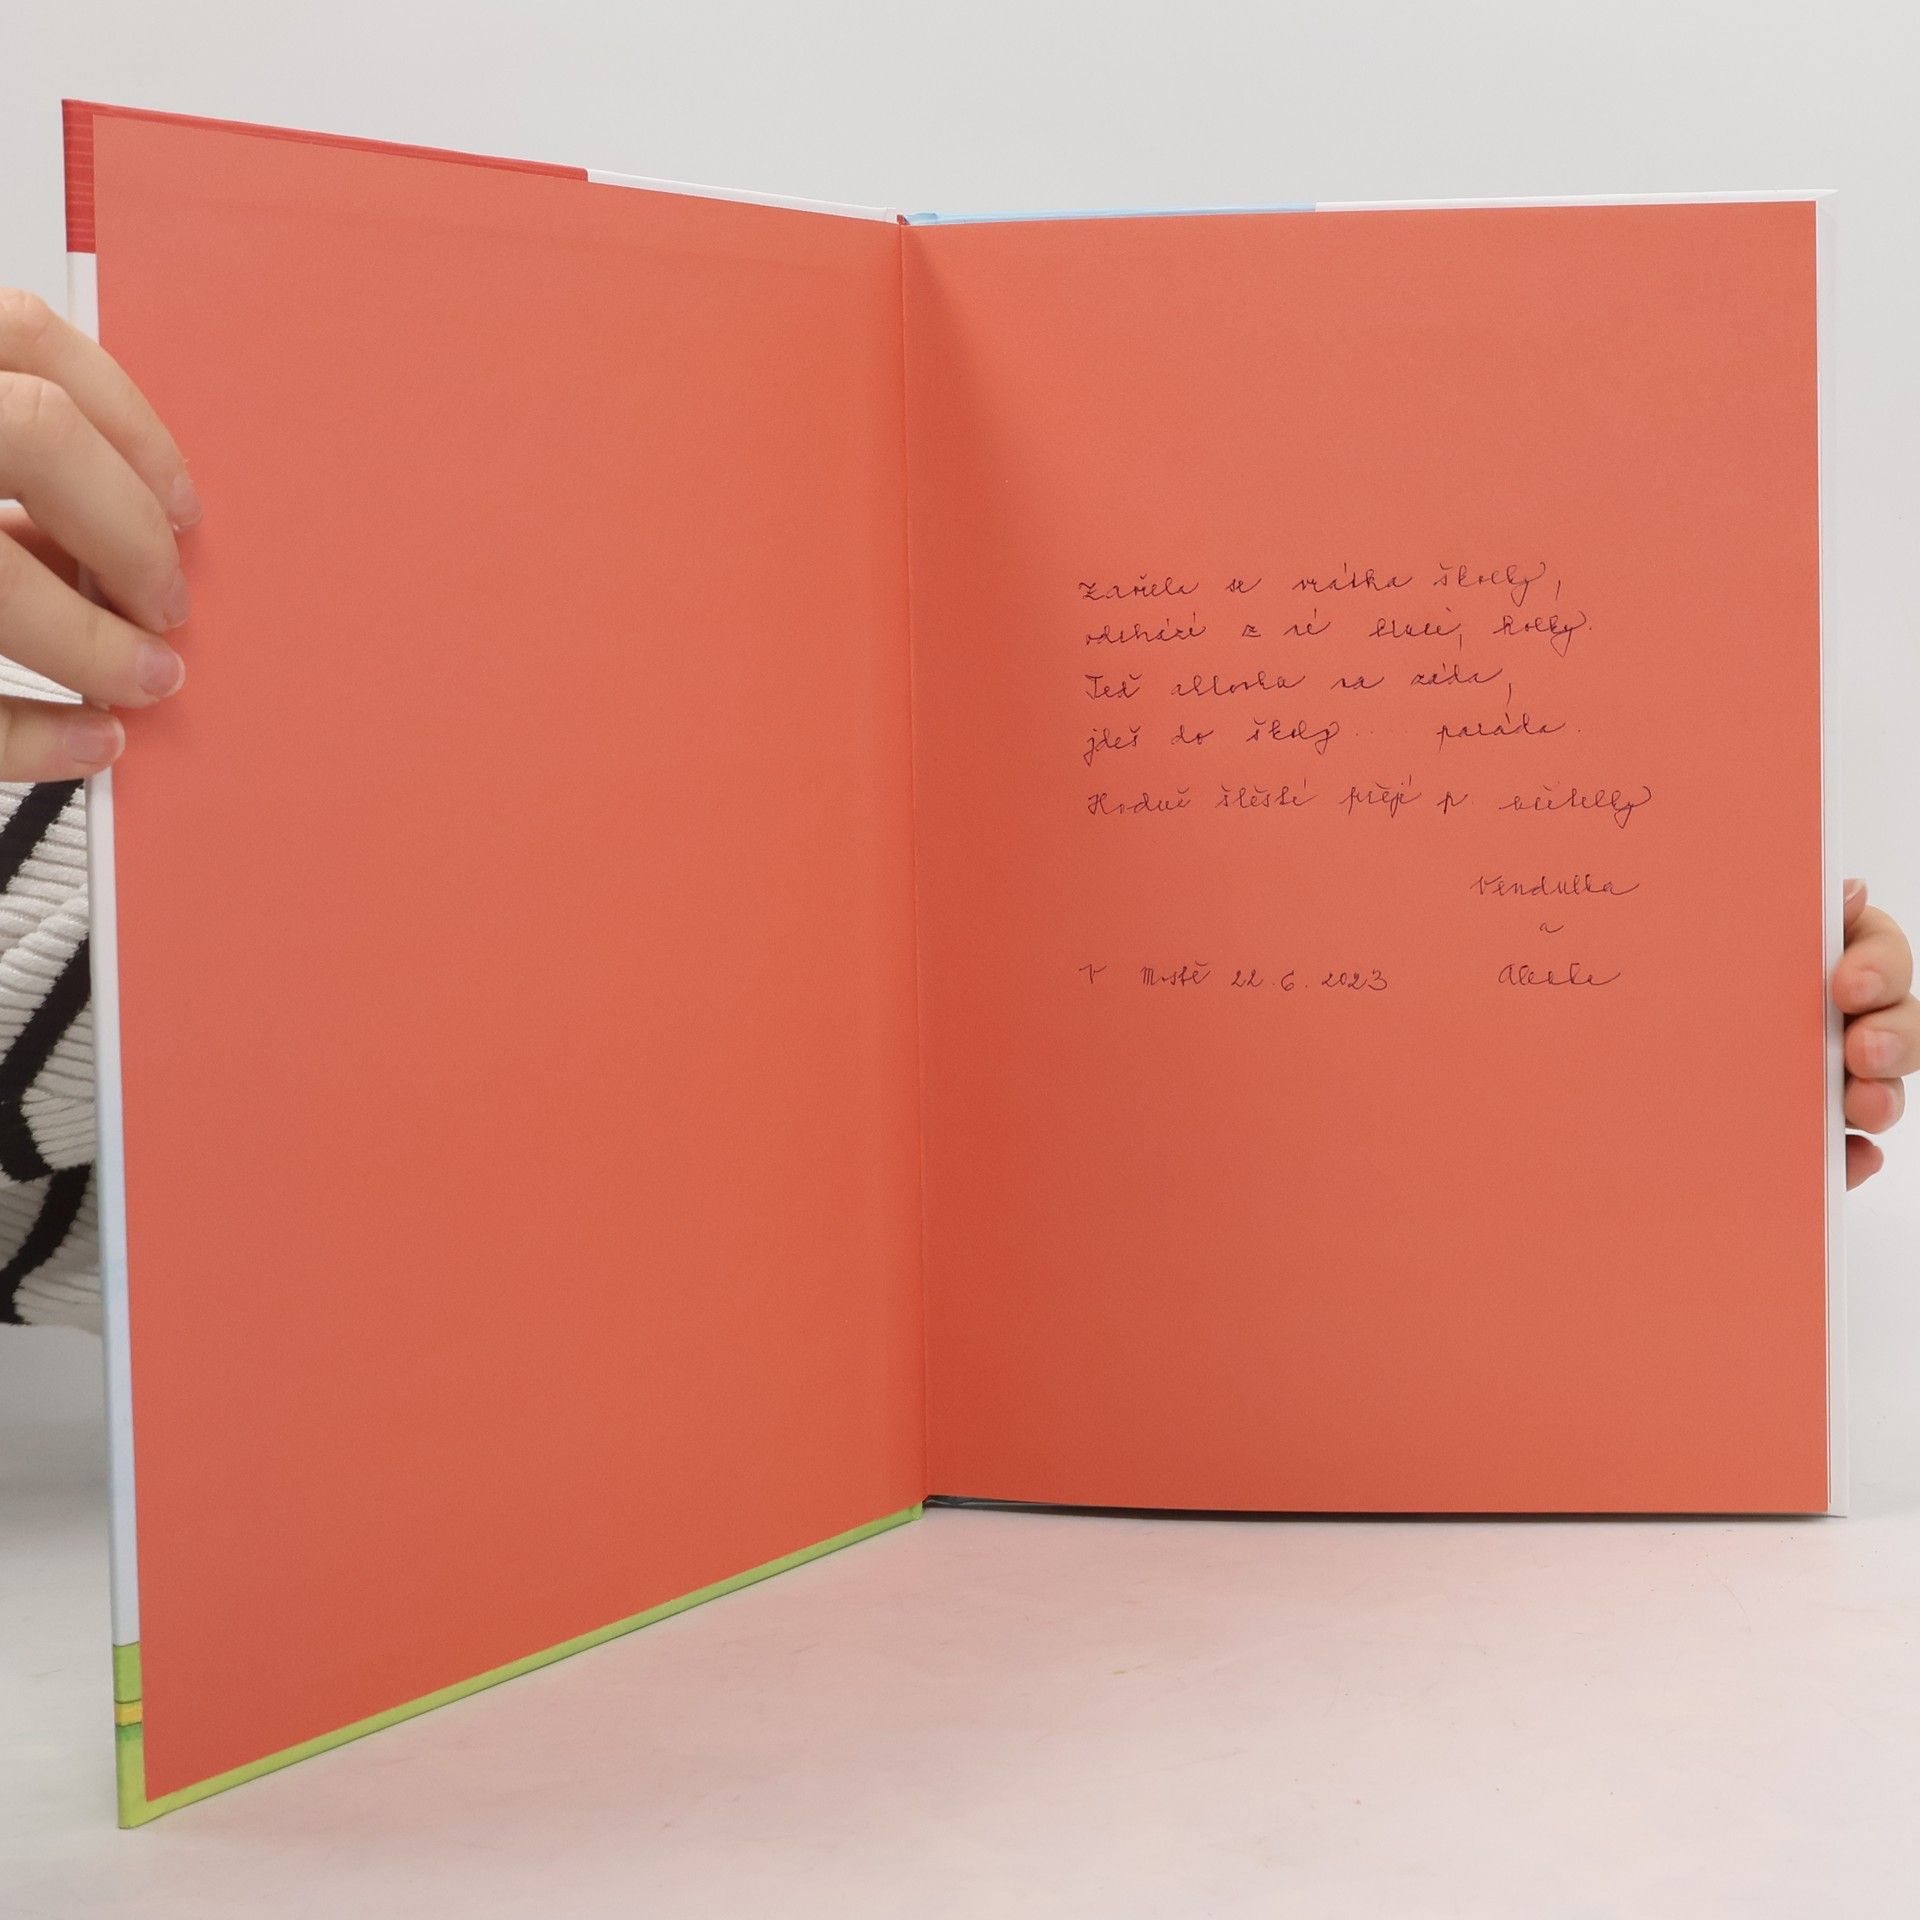 Zavřela se vrátka školky,
odchází z ní kluci, holky.
Teď aktovku na záda,
jdeš do školy .... paráda.
Hodně štěstí přejí p. učitelky
Vendulka
a
V Mostě 22.6.2023 Alenka